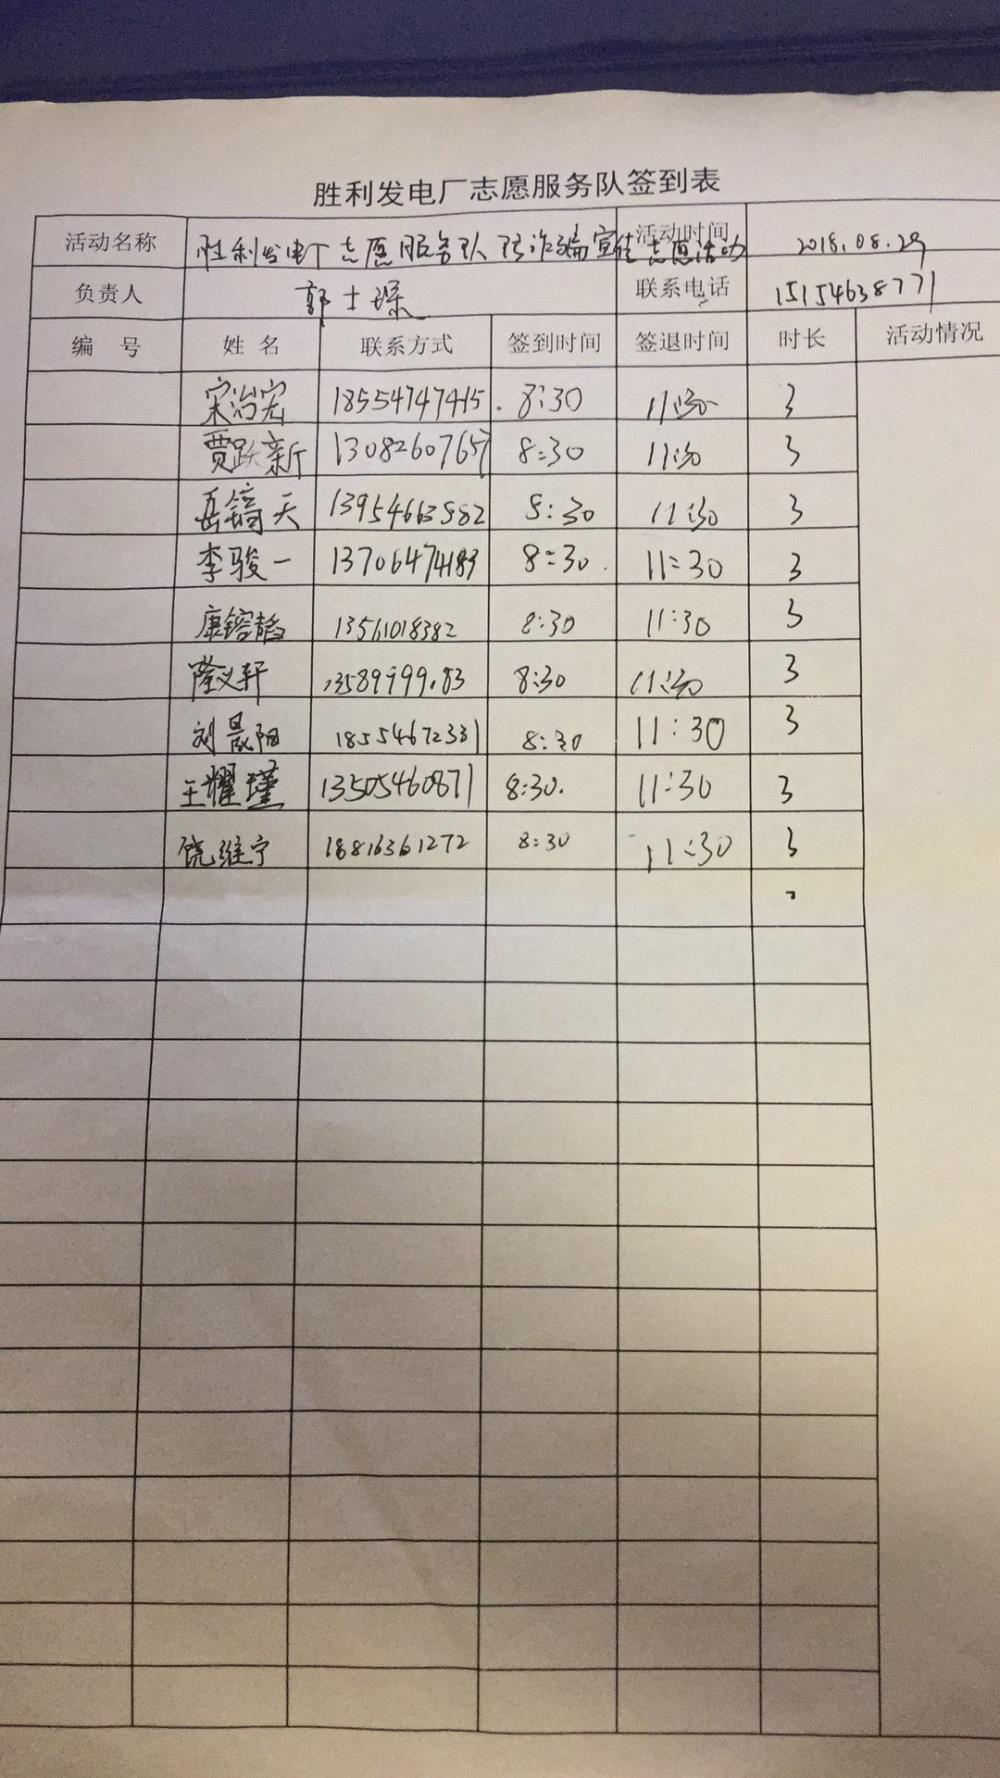 胜利发电厂志愿服务队签到表
活动名称 胜利发电厂志愿服务队防诈骗宣传志愿活动 活动时间 2018.08.29
负责人 郭士琛 联系电话 15154638771
编 号 姓 名 联系方式 签到时间 签退时间 时长 活动情况
宋治宏 18554747415 8:30 11:30 3
贾跃新 13082607657 8:30 11:30 3
岳镐天 13954663582 8:30 11:30 3
李骏一 13706474183 8:30 11:30 3
康镕韬 13561018382 8:30 11:30 3
隆义轩 8:30 11:30 3
刘晟阳 18554672331 8:30 11:30 3
王耀瑾 13505460871 8:30 11:30 3
饶维宁 18816361272 8:30 11:30 3